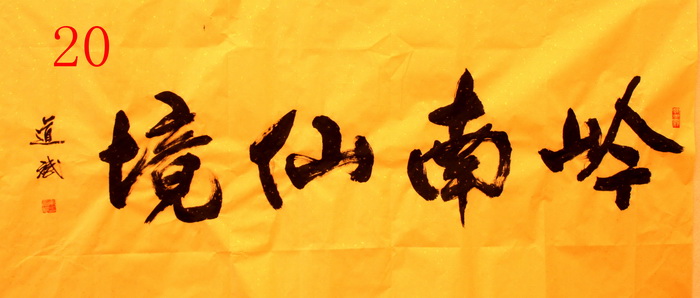 20
岭南仙境
道斌